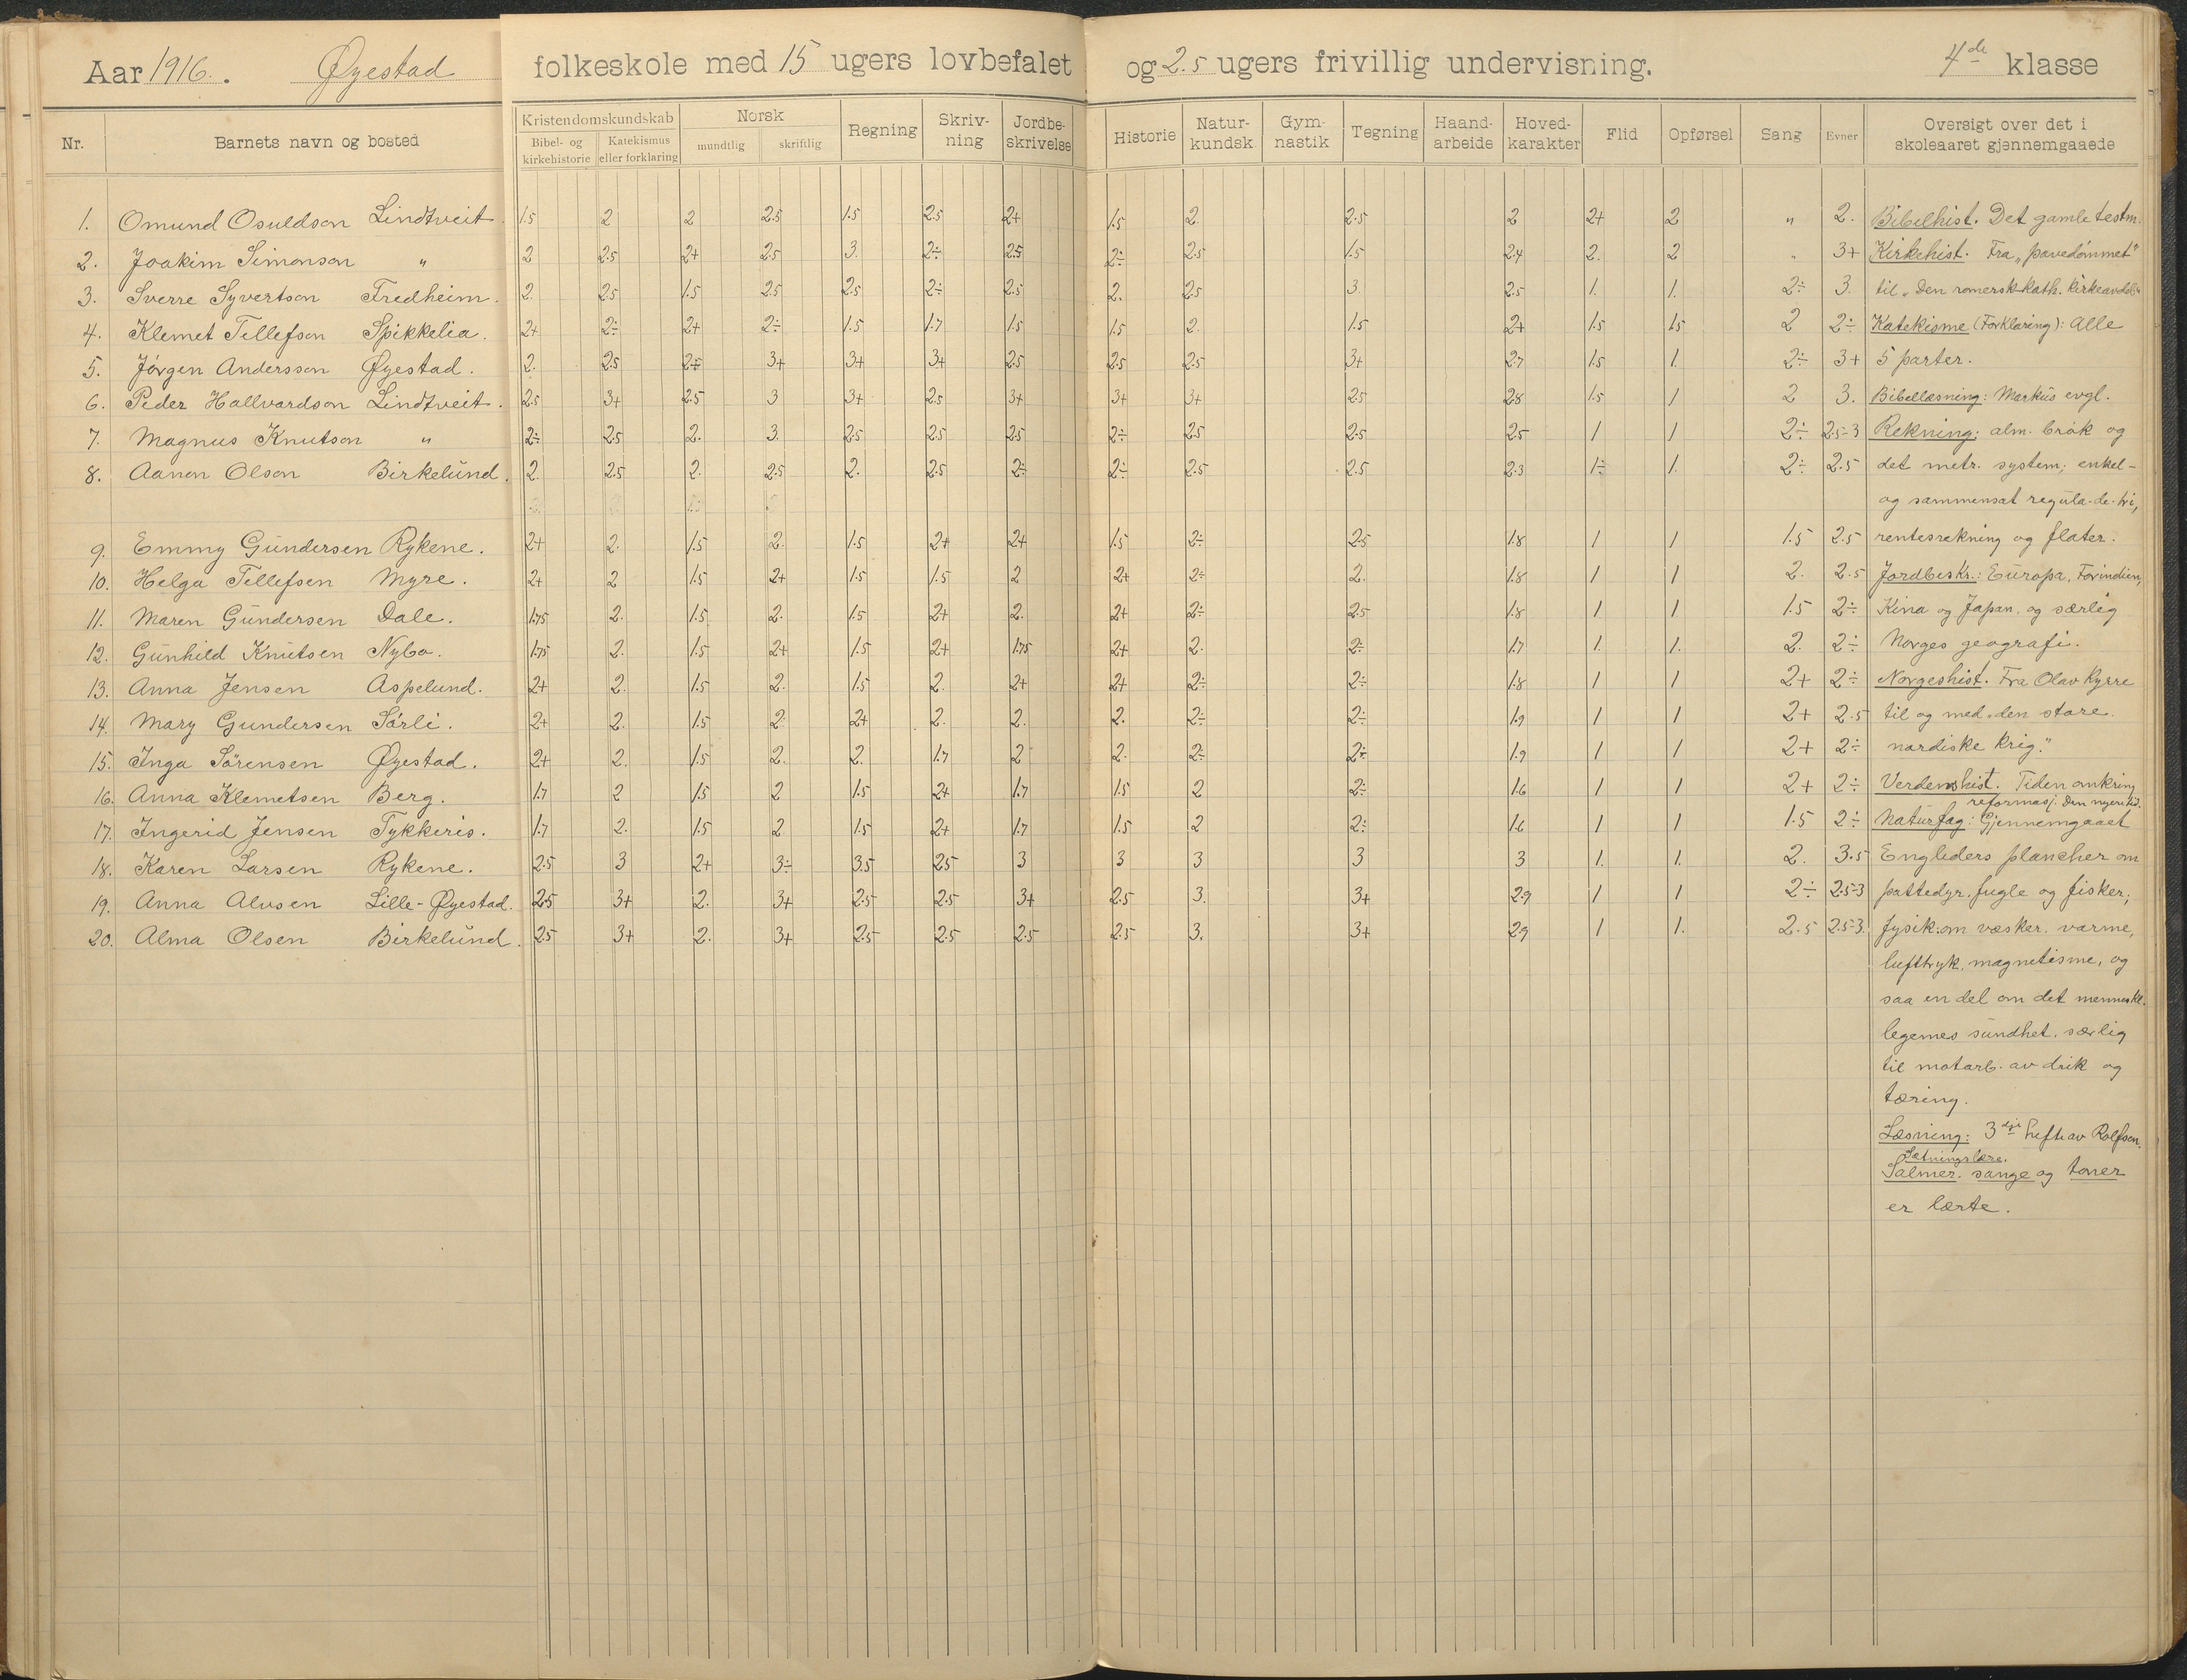 Aar 1916. Øyestad folkeskole med 15 ugers lovbefalet og 2.5 ugers frivillig undervisning. 4de klasse
Nr. Barnets navn og bosted Kristendomskundskab Norsk Regning Skriv-ning Jordbe-skrivelse Historie Natur-kundsk. Gym-nastik Tegning Haand-arbeide Hoved-karakter Flid Opførsel Sang Evner Oversigt over det i skoleaaret gjennemgaaede
Bibel- og kirkehistorie Katekismus eller forklaring mundtlig skriftlig
1. Omund Osuldson Lindtveit. 1.5 2 2 2.5 1.5 2.5 2+ 1.5 2. 2.5 2 2+ 2 " 2. Bibelhist. Det gamle testm.
2. Joakim Simonson " 2 2.5 2+ 2.5 3. 2÷ 2.5 2÷ 2.5 1.5 2.4 2. 2 " 3+ Kirkehist. Fra "pavedømmet"
3. Sverre Syvertson Fredheim. 2. 2.5 1.5 2.5 2.5 2÷ 2.5 2. 2.5 3. 2.5 1. 1. 2÷ 3. til "Den romersk-kath. kirkeavdel."
4. Klemet Tellefson Spikkelia. 2+ 2÷ 2+ 2÷ 1.5 1.7 1.5 1.5 2. 1.5 2+ 1.5 1.5 2 2÷ Katekisme (Forklaring): Alle
5. Jörgen Andersson Øyestad. 2. 2.5 2÷ 3+ 3+ 3+ 2.5 2.5 2.5 3+ 2.7 1.5 1. 2÷ 3+ 5 parter.
6. Peder Hallvardson Lindtveit. 2.5 3+ 2.5 3 3+ 2.5 3+ 3+ 3+ 2.5 2.8 1.5 1 2 3. Bibellæsning: Markus evgl.
7. Magnus Knutson " 2÷ 2.5 2. 3. 2.5 2.5 2.5 2÷ 2.5 2.5 2.5 1 1 2÷ 2.5-3 Rekning: alm. brøk og
8. Aanon Olson Birkelund. 2. 2.5 2. 2.5 2. 2.5 2÷ 2÷ 2.5 2.5 2.3 1÷ 1. 2÷ 2.5 det metr. system; enkel-
og sammensat regula-de-tri,
9. Emmy Gundersen Rykene. 2+ 2. 1.5 2. 1.5 2+ 2+ 1.5 2÷ 2.5 1.8 1 1 1.5 2.5 rentesrekning og flater.
10. Helga Tellefsen Myre. 2+ 2 1.5 2+ 1.5 1.5 2 2+ 2÷ 2. 1.8 1 1 2. 2.5 Jordbeskr.: Europa, Forindien,
11. Maren Gundersen Dale. 1.75 2. 1.5 2. 1.5 2+ 2. 2+ 2÷ 2.5 1.8 1 1 1.5 2÷ Kina og Japan, og særlig
12. Gunhild Knutsen Nybo. 1.75 2. 1.5 2+ 1.5 2+ 1.75 2+ 2. 2÷ 1.7 1. 1. 2. 2÷ Norges geografi.
13. Anna Jensen Aspelund. 2+ 2. 1.5 2. 1.5 2. 2+ 2+ 2÷ 2÷ 1.8 1 1 2+ 2÷ Norgeshist. Fra Olav Kyrre
14. Mary Gundersen Sörli. 2+ 2. 1.5 2. 2+ 2. 2. 2. 2÷ 2÷ 1.9 1 1 2+ 2.5 til og med "den store
15. Inga Sörensen Øyestad. 2+ 2. 1.5 2. 2. 1.7 2 2. 2÷ 2÷ 1.9 1 1 2+ 2÷ nordiske krig."
16. Anna Klemetsen Berg. 1.7 2 1.5 2 1.5 2+ 1.7 1.5 2 2÷ 1.6 1 1 2+ 2÷ Verdenshist. Tiden omkring
reformasj. Den nyere tid.
17. Ingerid Jensen Tykkeris. 1.7 2. 1.5 2. 1.5 2+ 1.7 1.5 2 2÷ 1.6 1 1 1.5 2÷ Naturfag: Gjennemgaaet
18. Karen Larsen Rykene. 2.5 3 2+ 3÷ 3.5 2.5 3 3 3 3 3 1. 1. 2. 3.5 Engleders plancher om
19. Anna Alvsen Lille-Øyestad. 2.5 3+ 2. 3+ 2.5 2.5 3+ 2.5 3. 3+ 2.9 1 1 2÷ 2.5-3 pattedyr, fugle og fisker;
20. Alma Olsen Birkelund. 2.5 3+ 2. 3+ 2.5 2.5 2.5 2.5 3. 3+ 2.9 1 1. 2.5 2.5-3. fysik: om væsker, varme,
lufttryk, magnetisme, og
saa en del om det menneskl.
legemes sundhet, særlig
til motarb. av drik og
tæring.
Læsning: 3dje hefte av Rolfsen.
Sætningslære.
Salmer, sange og toner
er lærte.